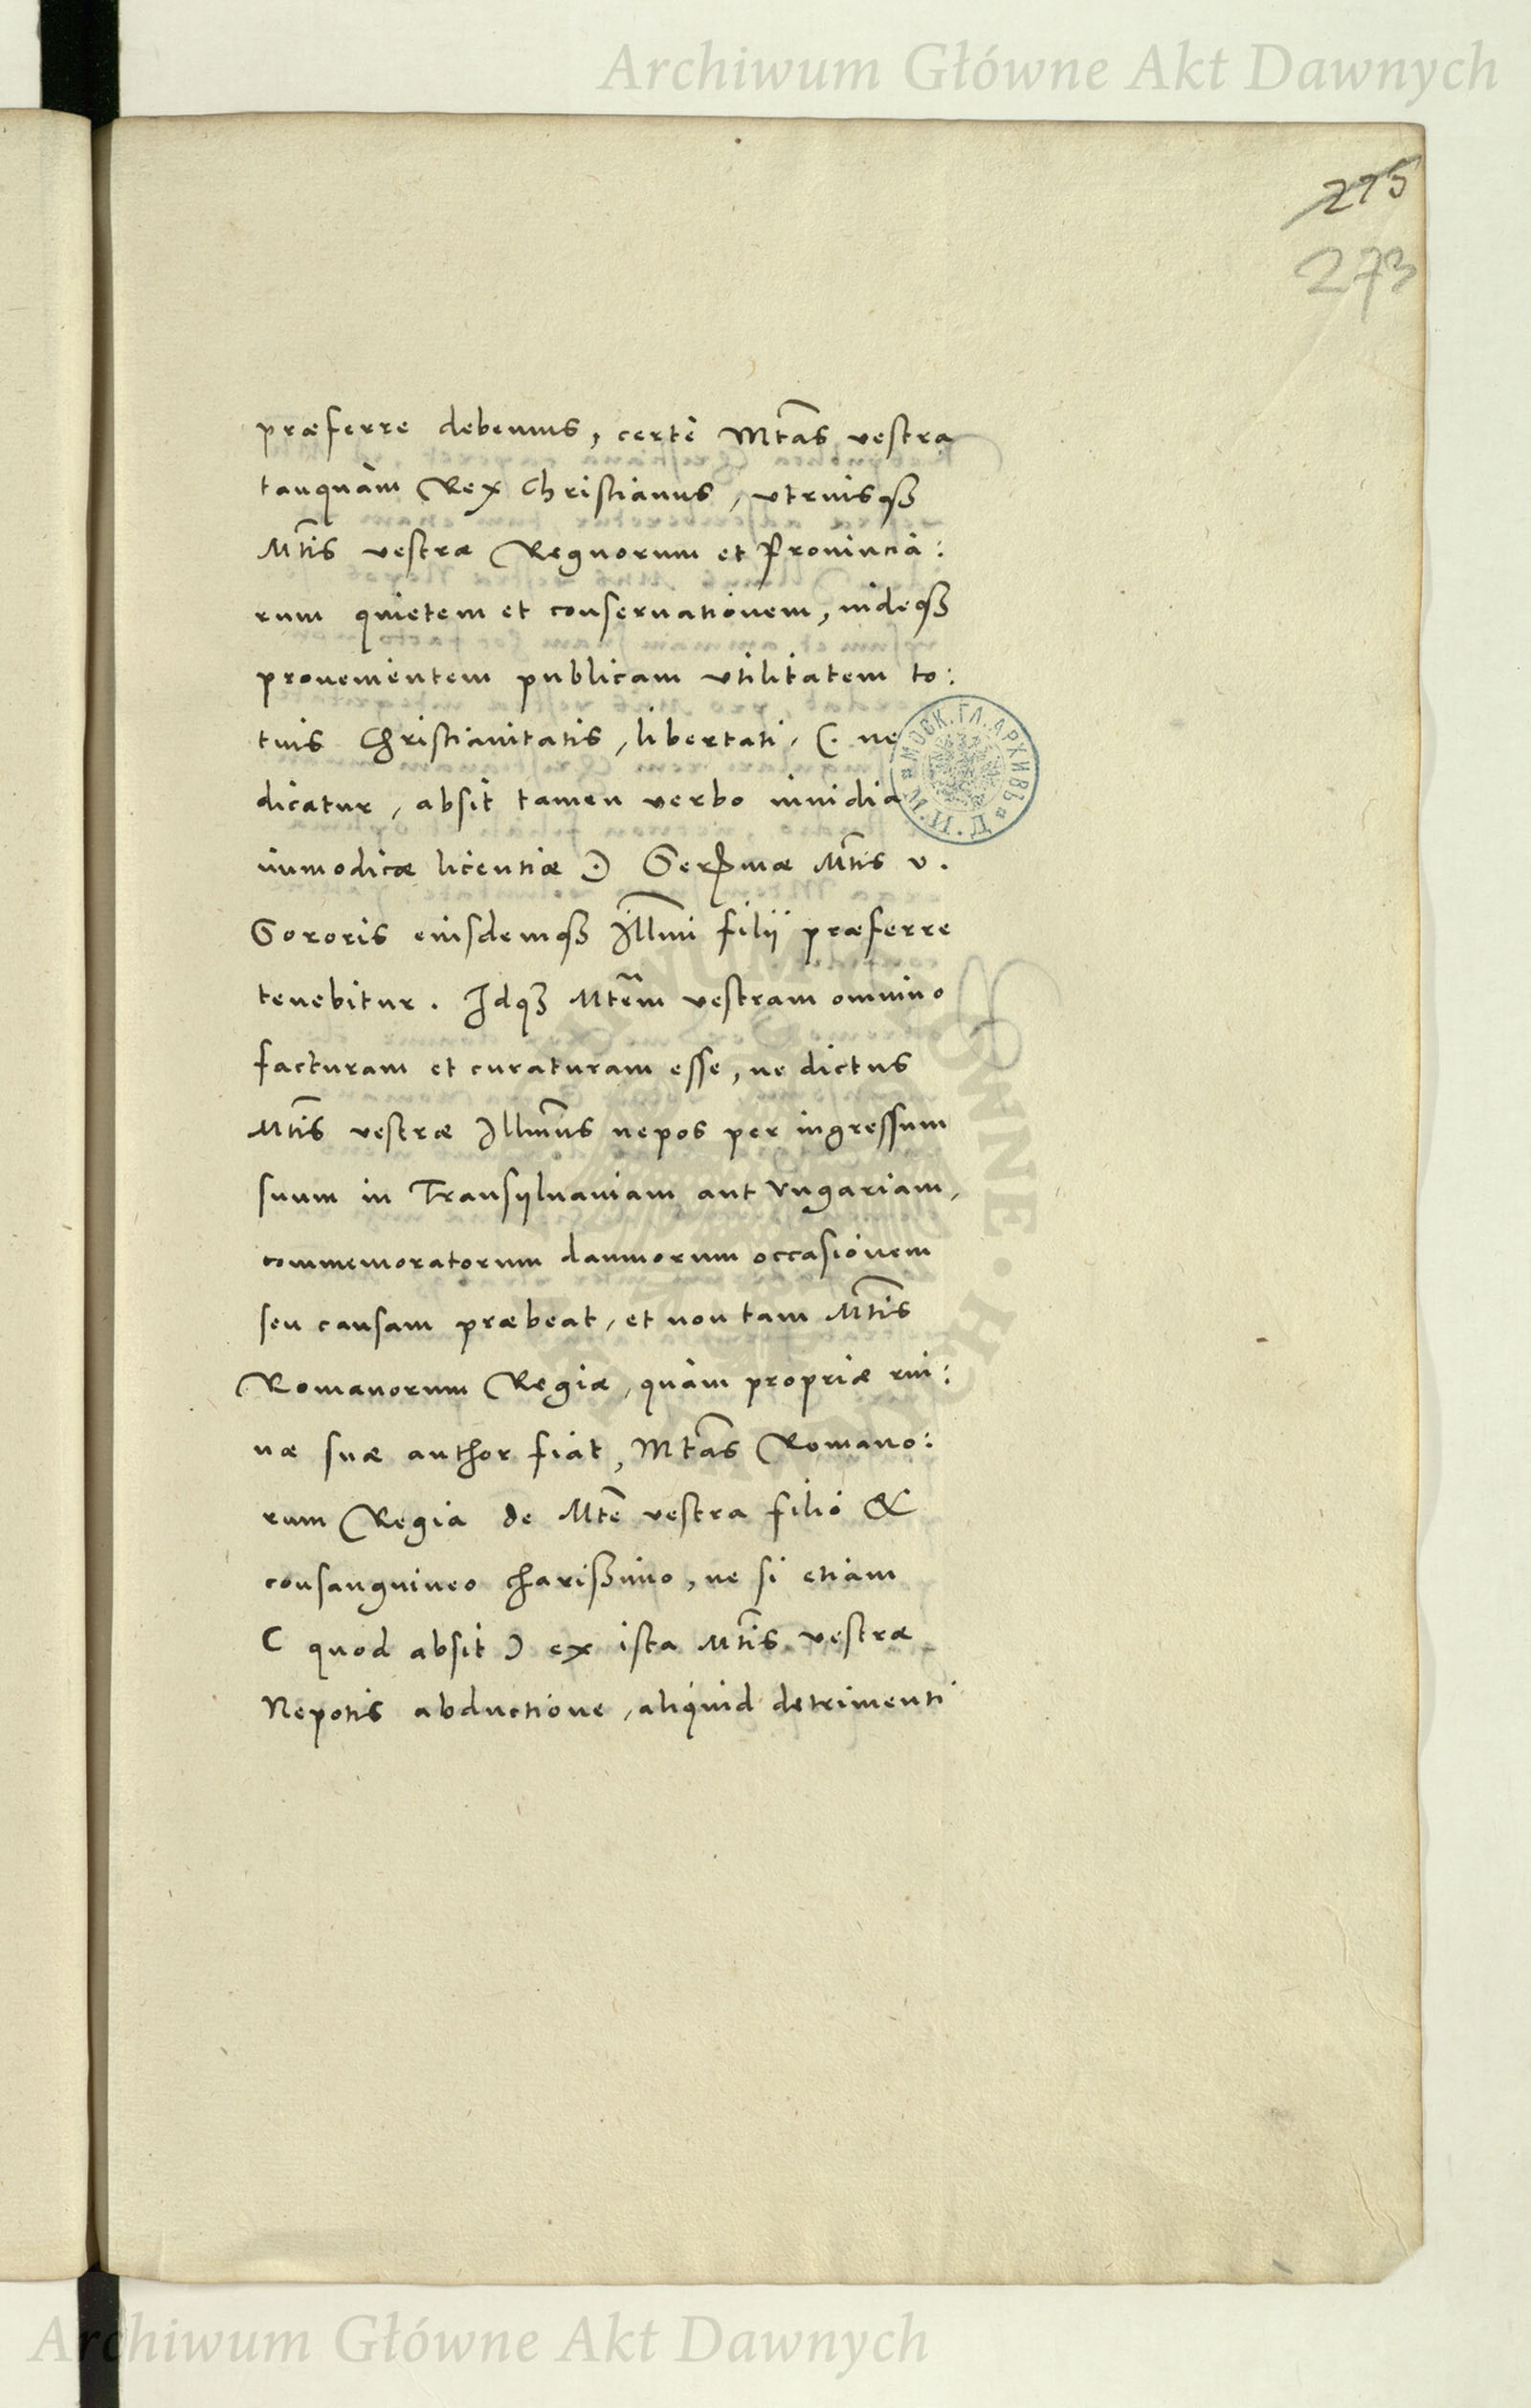 Archiwum Główne Akt Dawnych
215
273
præferre debemus, certè Mtas vestra
tanquàm Rex Christianus, vtriusqȝ
Mtis vestræ Regnorum et Prouincia:
rum quietem et conseruationem, indeqȝ
prouenientem publicam vtilitatem to:
tius Christianitatis, libertati, (. ne
dicatur, absit tamen verbo inuidia
immodicæ licentiæ .) Sermæ Mtis v.
Sororis eiusdemqȝ Illmi filij præferre
tenebitur. Idqȝ Mtem vestram omnino
facturam et curaturam esse, ne dictus
Mtis vestræ Illmus nepos per ingressum
suum in Transyluaniam aut Vngariam,
commemoratorum damnorum occasionem
seu causam præbeat, et non tam Mtis
Romanorum Regiæ, quàm propriæ rui:
næ suæ author fiat, Mtas Romano:
rum Regia de Mte vestra filio &
consanguineo charißimo, ne si etiam
( quod absit ) ex ista Mtis vestræ
Nepotis abductione, aliquid detrimenti
МОСК. ГЛ. АРХИВЪ
М. И. Д.
Archiwum Główne Akt Dawnych